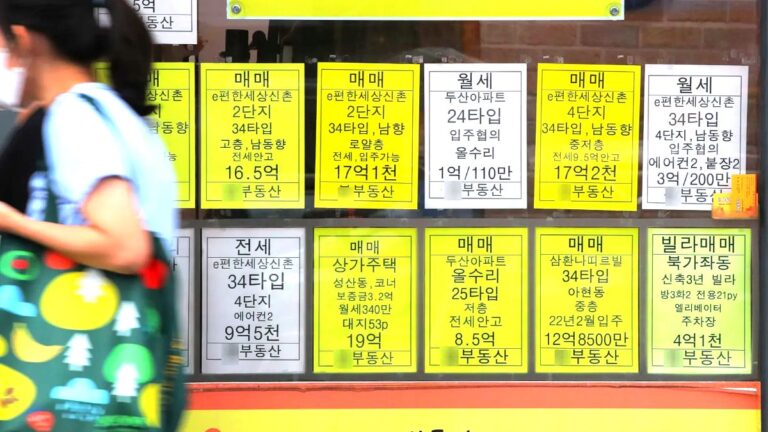 부동산
매매
e편한세상신촌
남동향
부동산
매매
e편한세상신촌
2단지
34타입
고층,남동향
전세안고
16.5억
부동산
매매
e편한세상신촌
2단지
34타입,남향
로얄층
전세,입주가능
17억1천
부동산
월세
두산아파트
24타입
입주협의
올수리
1억/110만
부동산
매매
e편한세상신촌
4단지
34타입,남향
중저층
전세9.5억안고
17억2천
부동산
월세
e편한세상신촌
34타입
4단지,남동향
입주협의
에어컨2,붙장2
3억/200만
부동산
전세
e편한세상신촌
34타입
4단지
에어컨2
9억5천
부동산
매매
상가주택
성산동,코너
보증금3.2억
월세340만
대지53p
19억
부동산
매매
두산아파트
올수리
25타입
저층
전세안고
8.5억
부동산
매매
삼환나띠르빌
34타입
아현동
중층
22년2월입주
12억8500만
부동산
빌라매매
북가좌동
신축3년 빌라
방3화2 전용21py
엘리베이터
주차장
4억1천
부동산